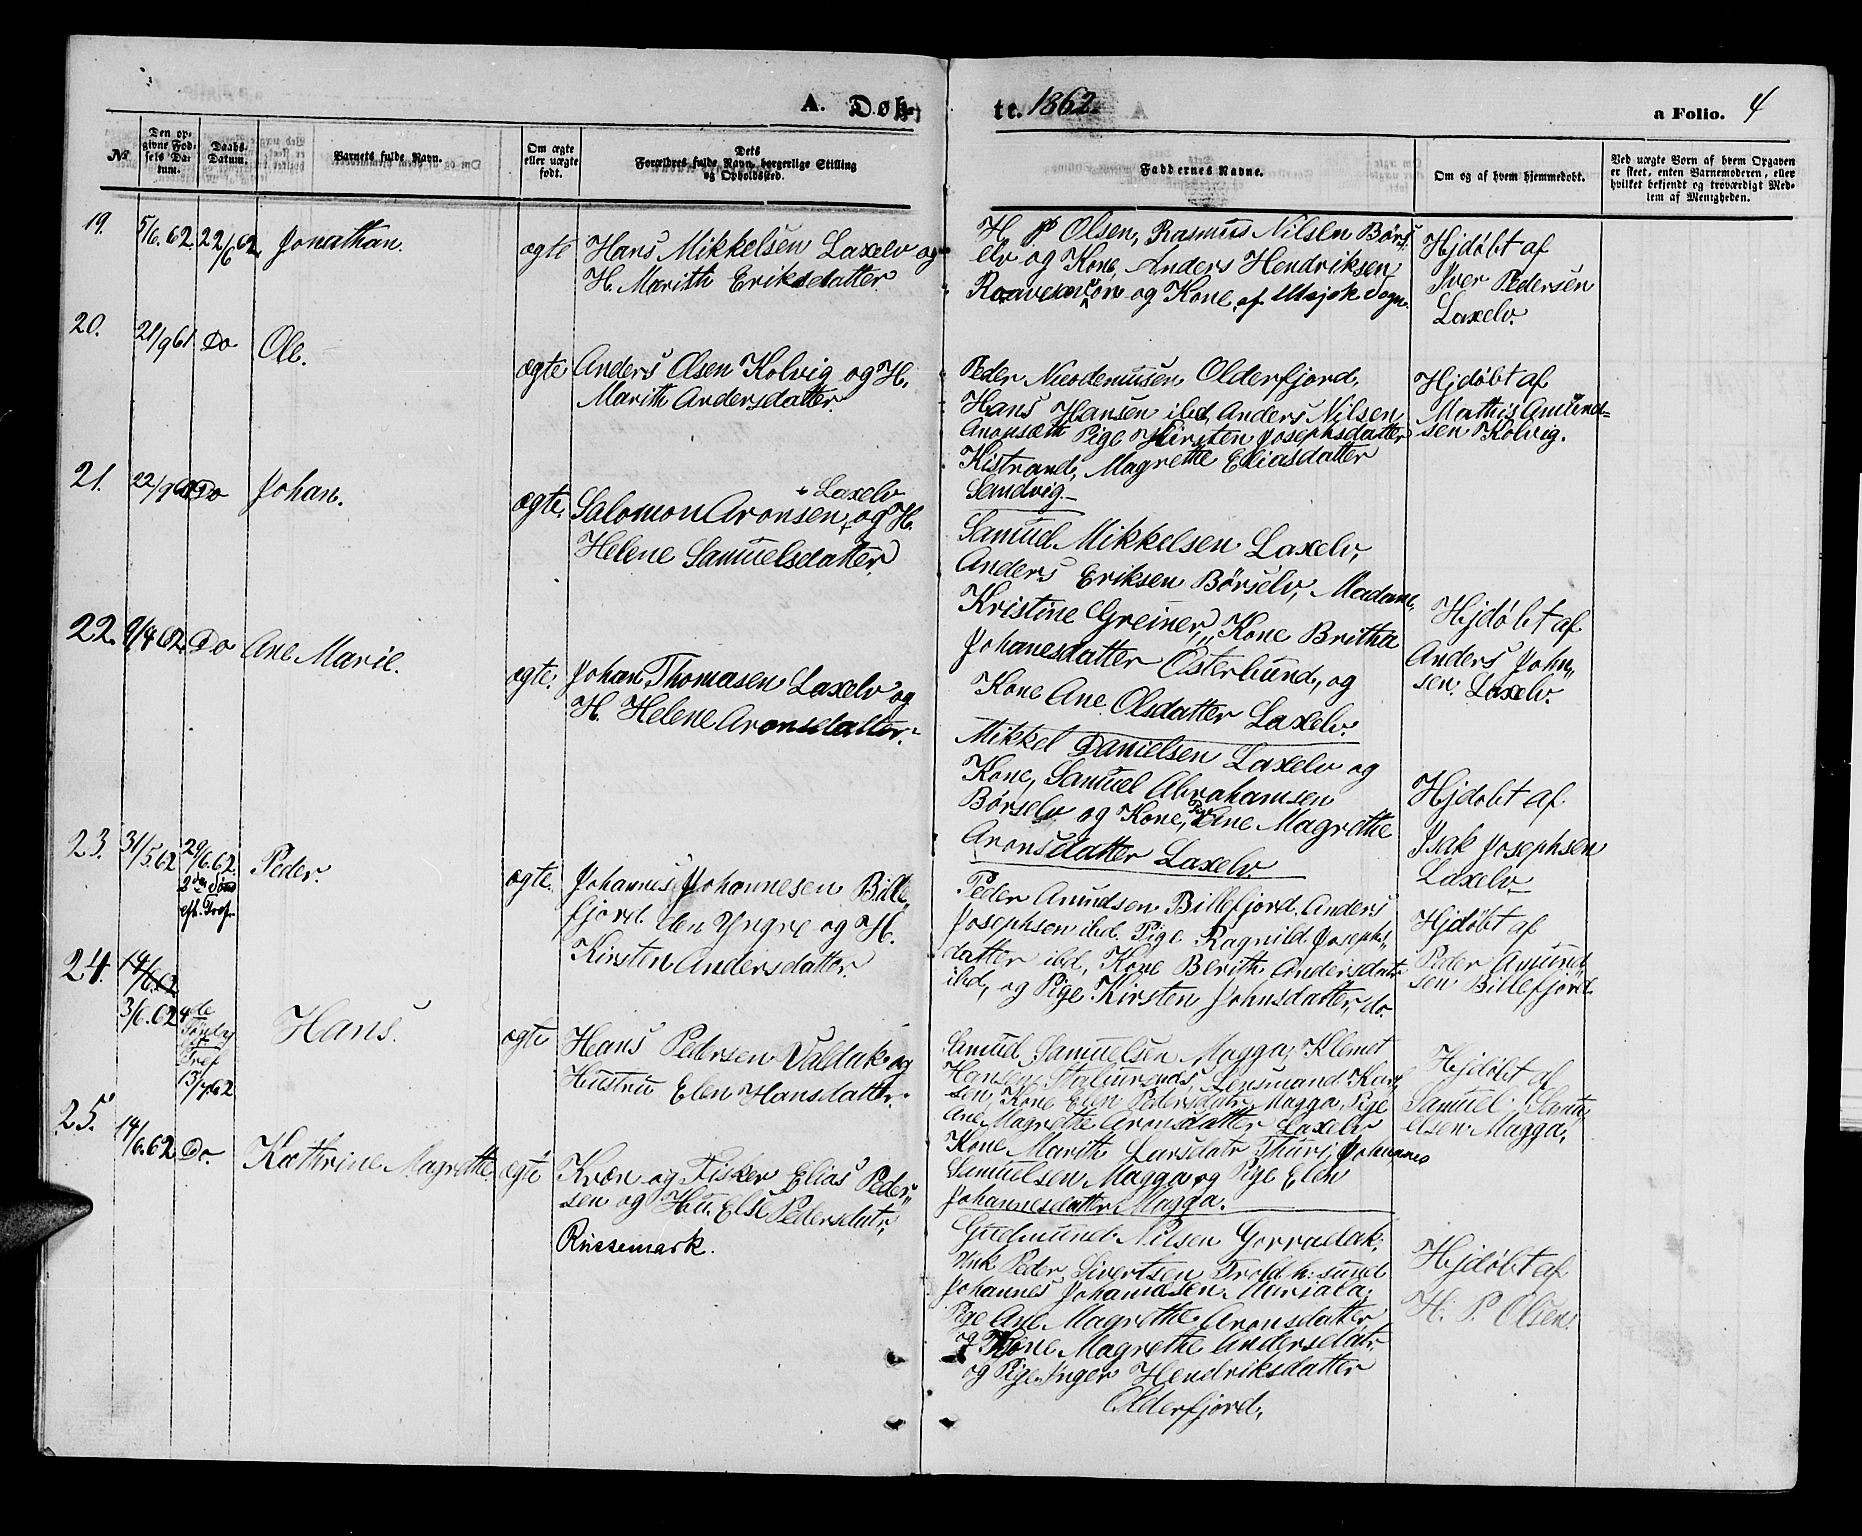 A. Døb-
te. 1862.
a Folio. 4
No
Den op-
givne Fød-
sels Da-
tum.
Daabs-
Datum.
Barnets fulde Navn.
Om ægte
eller uægte
født.
Dets
Forældres fulde Navn, borgerlige Stilling
og Opholdssted.
Faddernes Navne.
Om og af hvem hjemmedøbt.
Ved uægte Børn af hvem Opgaven
er skeet, enten Barnemoderen, eller
hvilket bekjendt og troværdigt Med-
lem af Menigheden.
19.
5/6.62.
22/6 62.
Jonathan.
ægte
Hans Mikkelsen Laxelv og
H. Marith Eriksdatter
H. P Olsen, Rasmus Nilsen Børs
elv og Kone, Anders Hendriksen
og Kone af Utsjok Sogn.
Hjdøbt af
Iver Pedersen
Laxelv.
20.
21/9 61
Do
Ole.
ægte
Anders Olsen Kolvig og H.
Marith Andersdatter.
Peder Nicodemusen Olderfjord,
Hans Hansen ibd, Anders Nilsen
Pige Kirsten Josephsdatter
Kistrand, Magrethe Eliasdatter
Sandvig.
Hjdøbt af
Mathis Amund-
sen Kolvig.
21.
22/9 61
Do
Johan.
ægte.
Laxelv
Salomon Aronsen, og H.
Helene Samuelsdatter.
Samuel Mikkelsen Laxelv,
Anders Eriksen Børselv, Madame,
Kristine Greiner, Kone Britha
Johanesdatter Østerlund, og
Kone Ane Olsdatter Laxelv.
Hjdøbt af
Anders John,,
sen. Laxelv.
22.
9/4 62.
Do
Ane Marie.
ægte.
Johan Thomasen Laxelv og
H. Helene Aronsdatter.
Mikkel Danielsen Laxelv og
Kone, Samuel Abrahamsen
Børselv og Kone, Pige Ane Magrethe
Aronsdatter Laxelv
Hjdøbt af
Isak Josephsen
Laxelv
23.
31/5 62
29/6.62.
2den Sønd
eft. Tref.
Peder.
ægte.
Johannes Johannesen Bille,,
fjord. den Yngre og H.
Kirsten Andersdatter.
Peder Amundsen Billefjord. Anders
Josephsen ibd. Pige Ragnild Josephs,,
datter ibd, Kone Berith Andersdatr
ibd, og Pige Kirsten Johnsdatter, do.
Hjdøbt af
Peder Amund,,
sen. Billefjord.
24.
14/6.62
3/6.62
4de
Søndg
Tref
13/7.62
Hans.
ægte
Hans Pedersen Valdak og
Hustru Elen Hansdatter.
Samuel Samuelsen Magga, Klemet
Hansen Lensmand
sen, Kone Elen Pedersdatr Magga, Pige
Ane Magrethe Aronsdatter Laxelv
Kone Marith Larsdatr Thuri, Johannes
Samuelsen Magga og Pige Elen
Johannesdatter Magga.
Hjdøbt af
Samuel Samu
elsen Magga,
25.
14/6.62
Do.
Kathrine Magrethe
ægte
Kvæn og Fisker Elias Peder,,
sen og Hu. Else Pedersdatr,
Russemark.
Gudmund Nilsen
Unk Peder Sivertsen Trold h: sund
Johannes
Pige Ane Magrethe Aronsdatter,
og Kone Magrethe Andersdatr.
og Pige Inger Hendriksdatter
Olderfjord,
Hjdøbt af
H. P. Olsen.